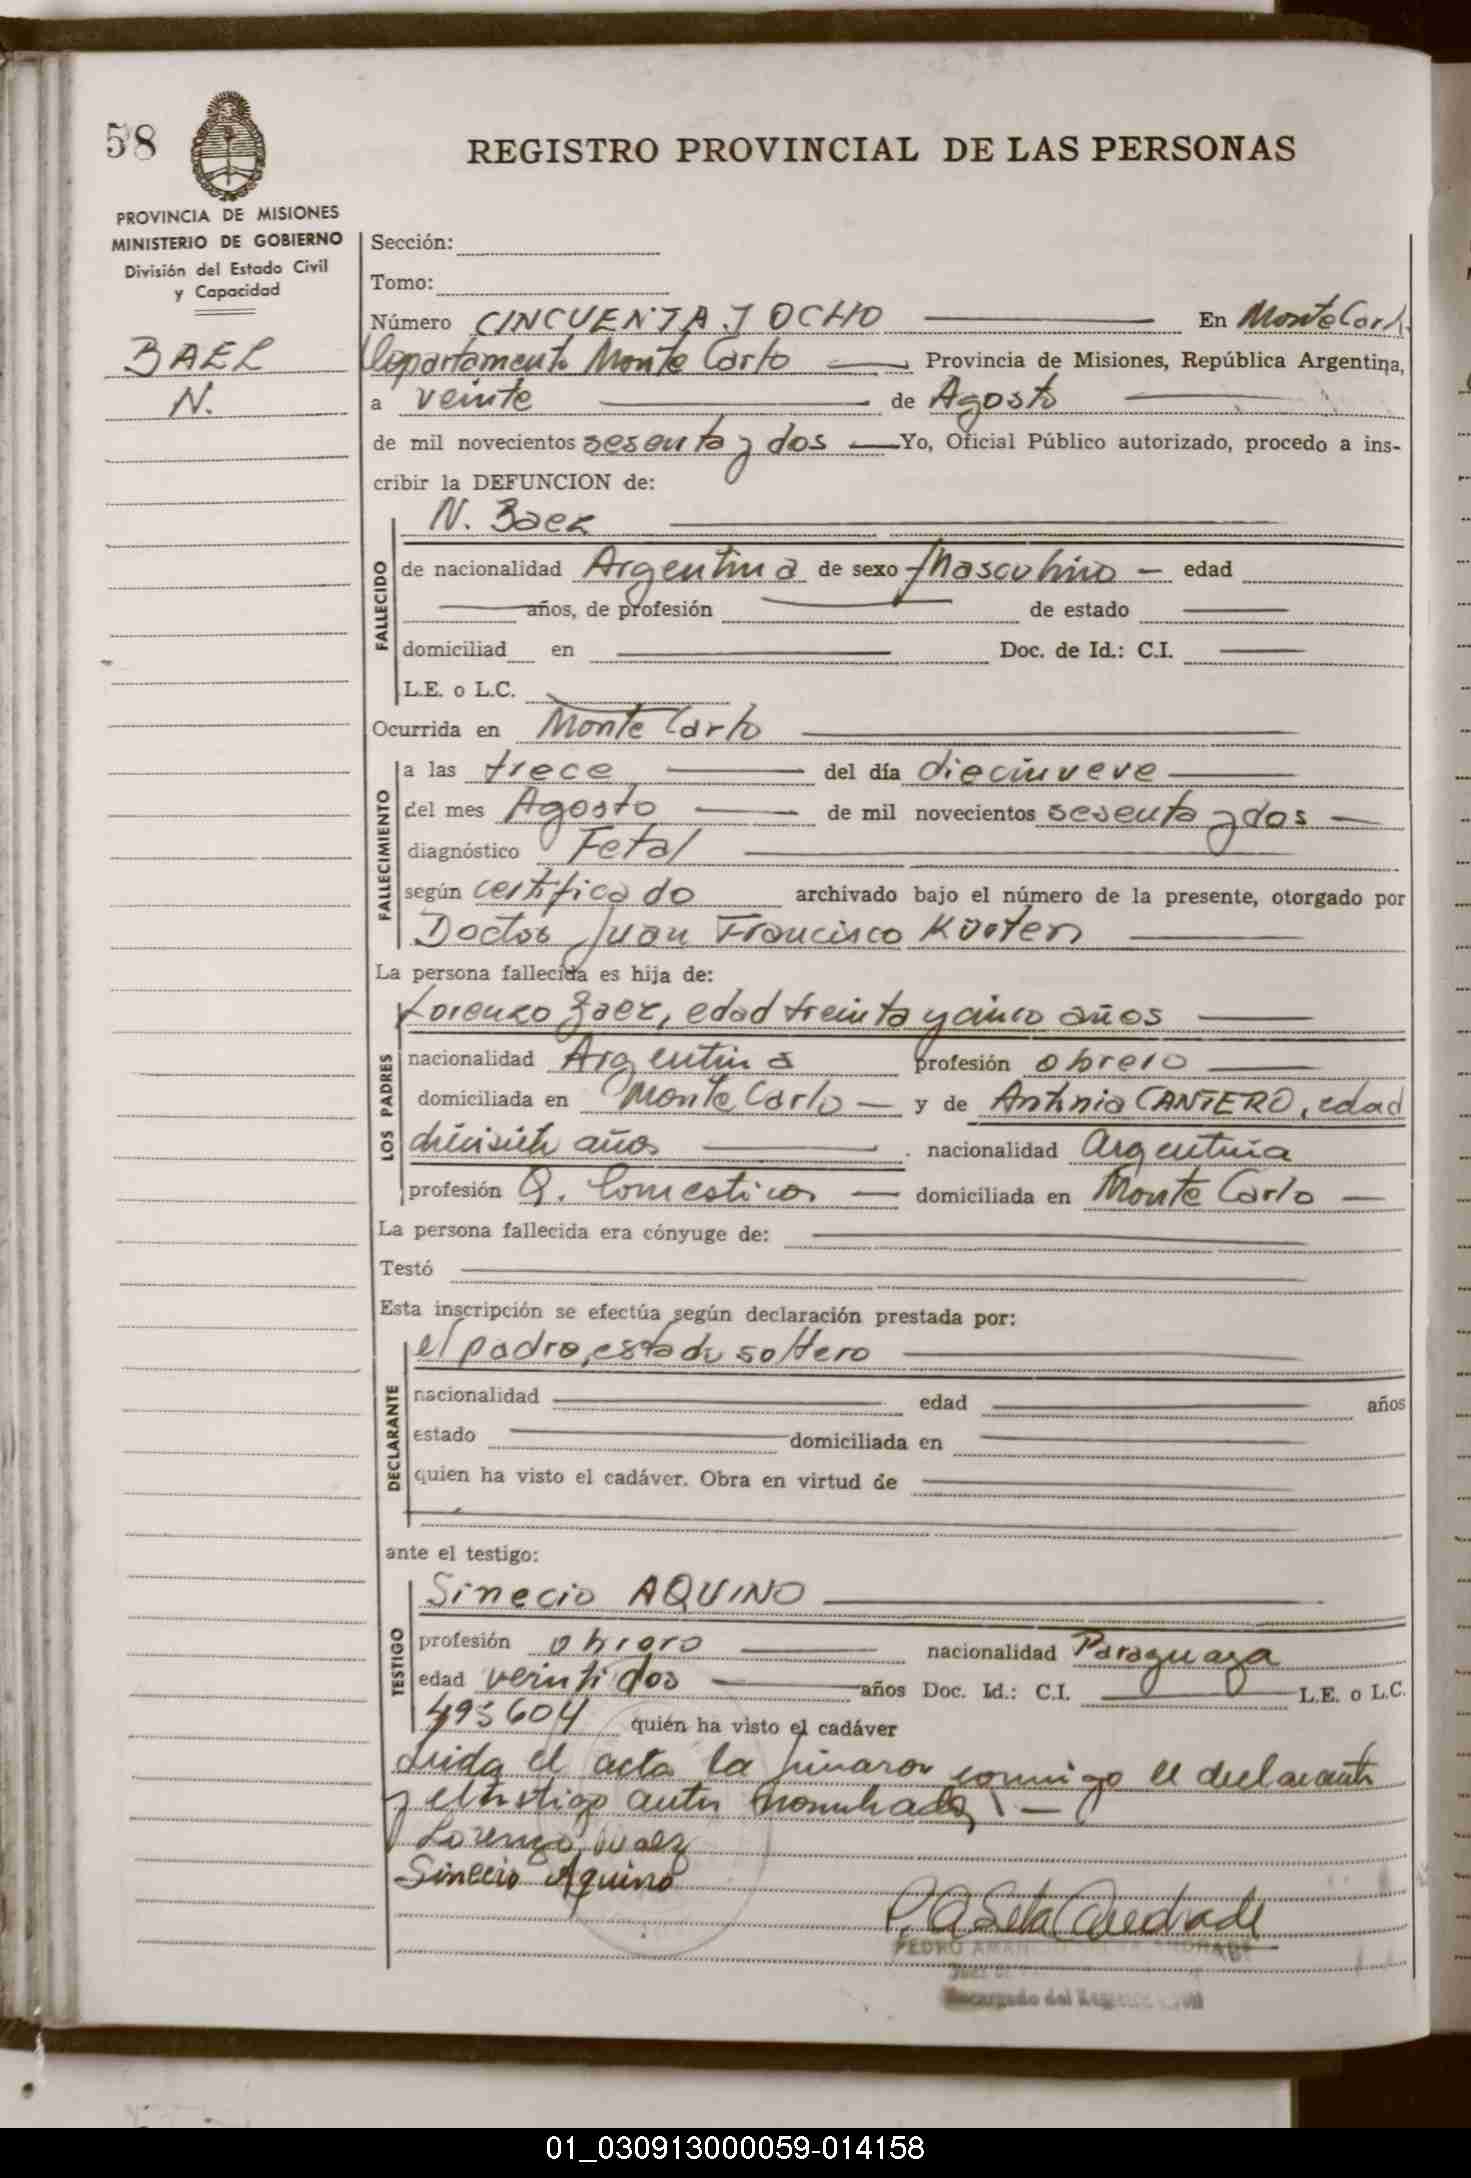 58
REGISTRO PROVINCIAL DE LAS PERSONAS
PROVINCIA DE MISIONES
MINISTERIO DE GOBIERNO
División del Estado Civil
y Capacidad
BAEZ
N.
Sección:
Tomo:
Número CINCUENTA Y OCHO En Monte Carlo
Departamento Monte Carlo Provincia de Misiones, República Argentina,
a veinte de Agosto
de mil novecientos sesenta y dos Yo, Oficial Público autorizado, procedo a ins-
cribir la DEFUNCION de:
N. Baez
FALLECIDO
de nacionalidad Argentina de sexo Masculino edad
años, de profesión de estado
domiciliad en Doc. de Id.: C.I.
L.E. o L.C.
Ocurrida en Monte Carlo
FALLECIMIENTO
a las trece del día diecinueve
del mes Agosto de mil novecientos sesenta y dos
diagnóstico Fetal
según certificado archivado bajo el número de la presente, otorgado por
Doctor Juan Francisco Küsters
La persona fallecida es hija de:
LOS PADRES
Lorenzo Baez, edad treinta y cinco años
nacionalidad Argentina profesión obrero
domiciliada en Monte Carlo y de Antonia CANTERO, edad
diecisiete años nacionalidad Argentina
profesión Q. Domesticos domiciliada en Monte Carlo
La persona fallecida era cónyuge de:
Testó
Esta inscripción se efectúa según declaración prestada por:
DECLARANTE
el padre, estado soltero
nacionalidad edad años
estado domiciliada en
quien ha visto el cadáver. Obra en virtud de
ante el testigo:
TESTIGO
Sinecio AQUINO
profesión obrero nacionalidad Paraguaya
edad veintidos años Doc. Id.: C.I. L.E. o L.C.
493604 quién ha visto el cadáver
Leida el acta la firmaron conmigo el declarante
y el testigo antes nombrado
Lorenzo Baez
Sinecio Aquino
PEDRO ANDRADE
Encargado del Registro Civil
01_030913000059-014158